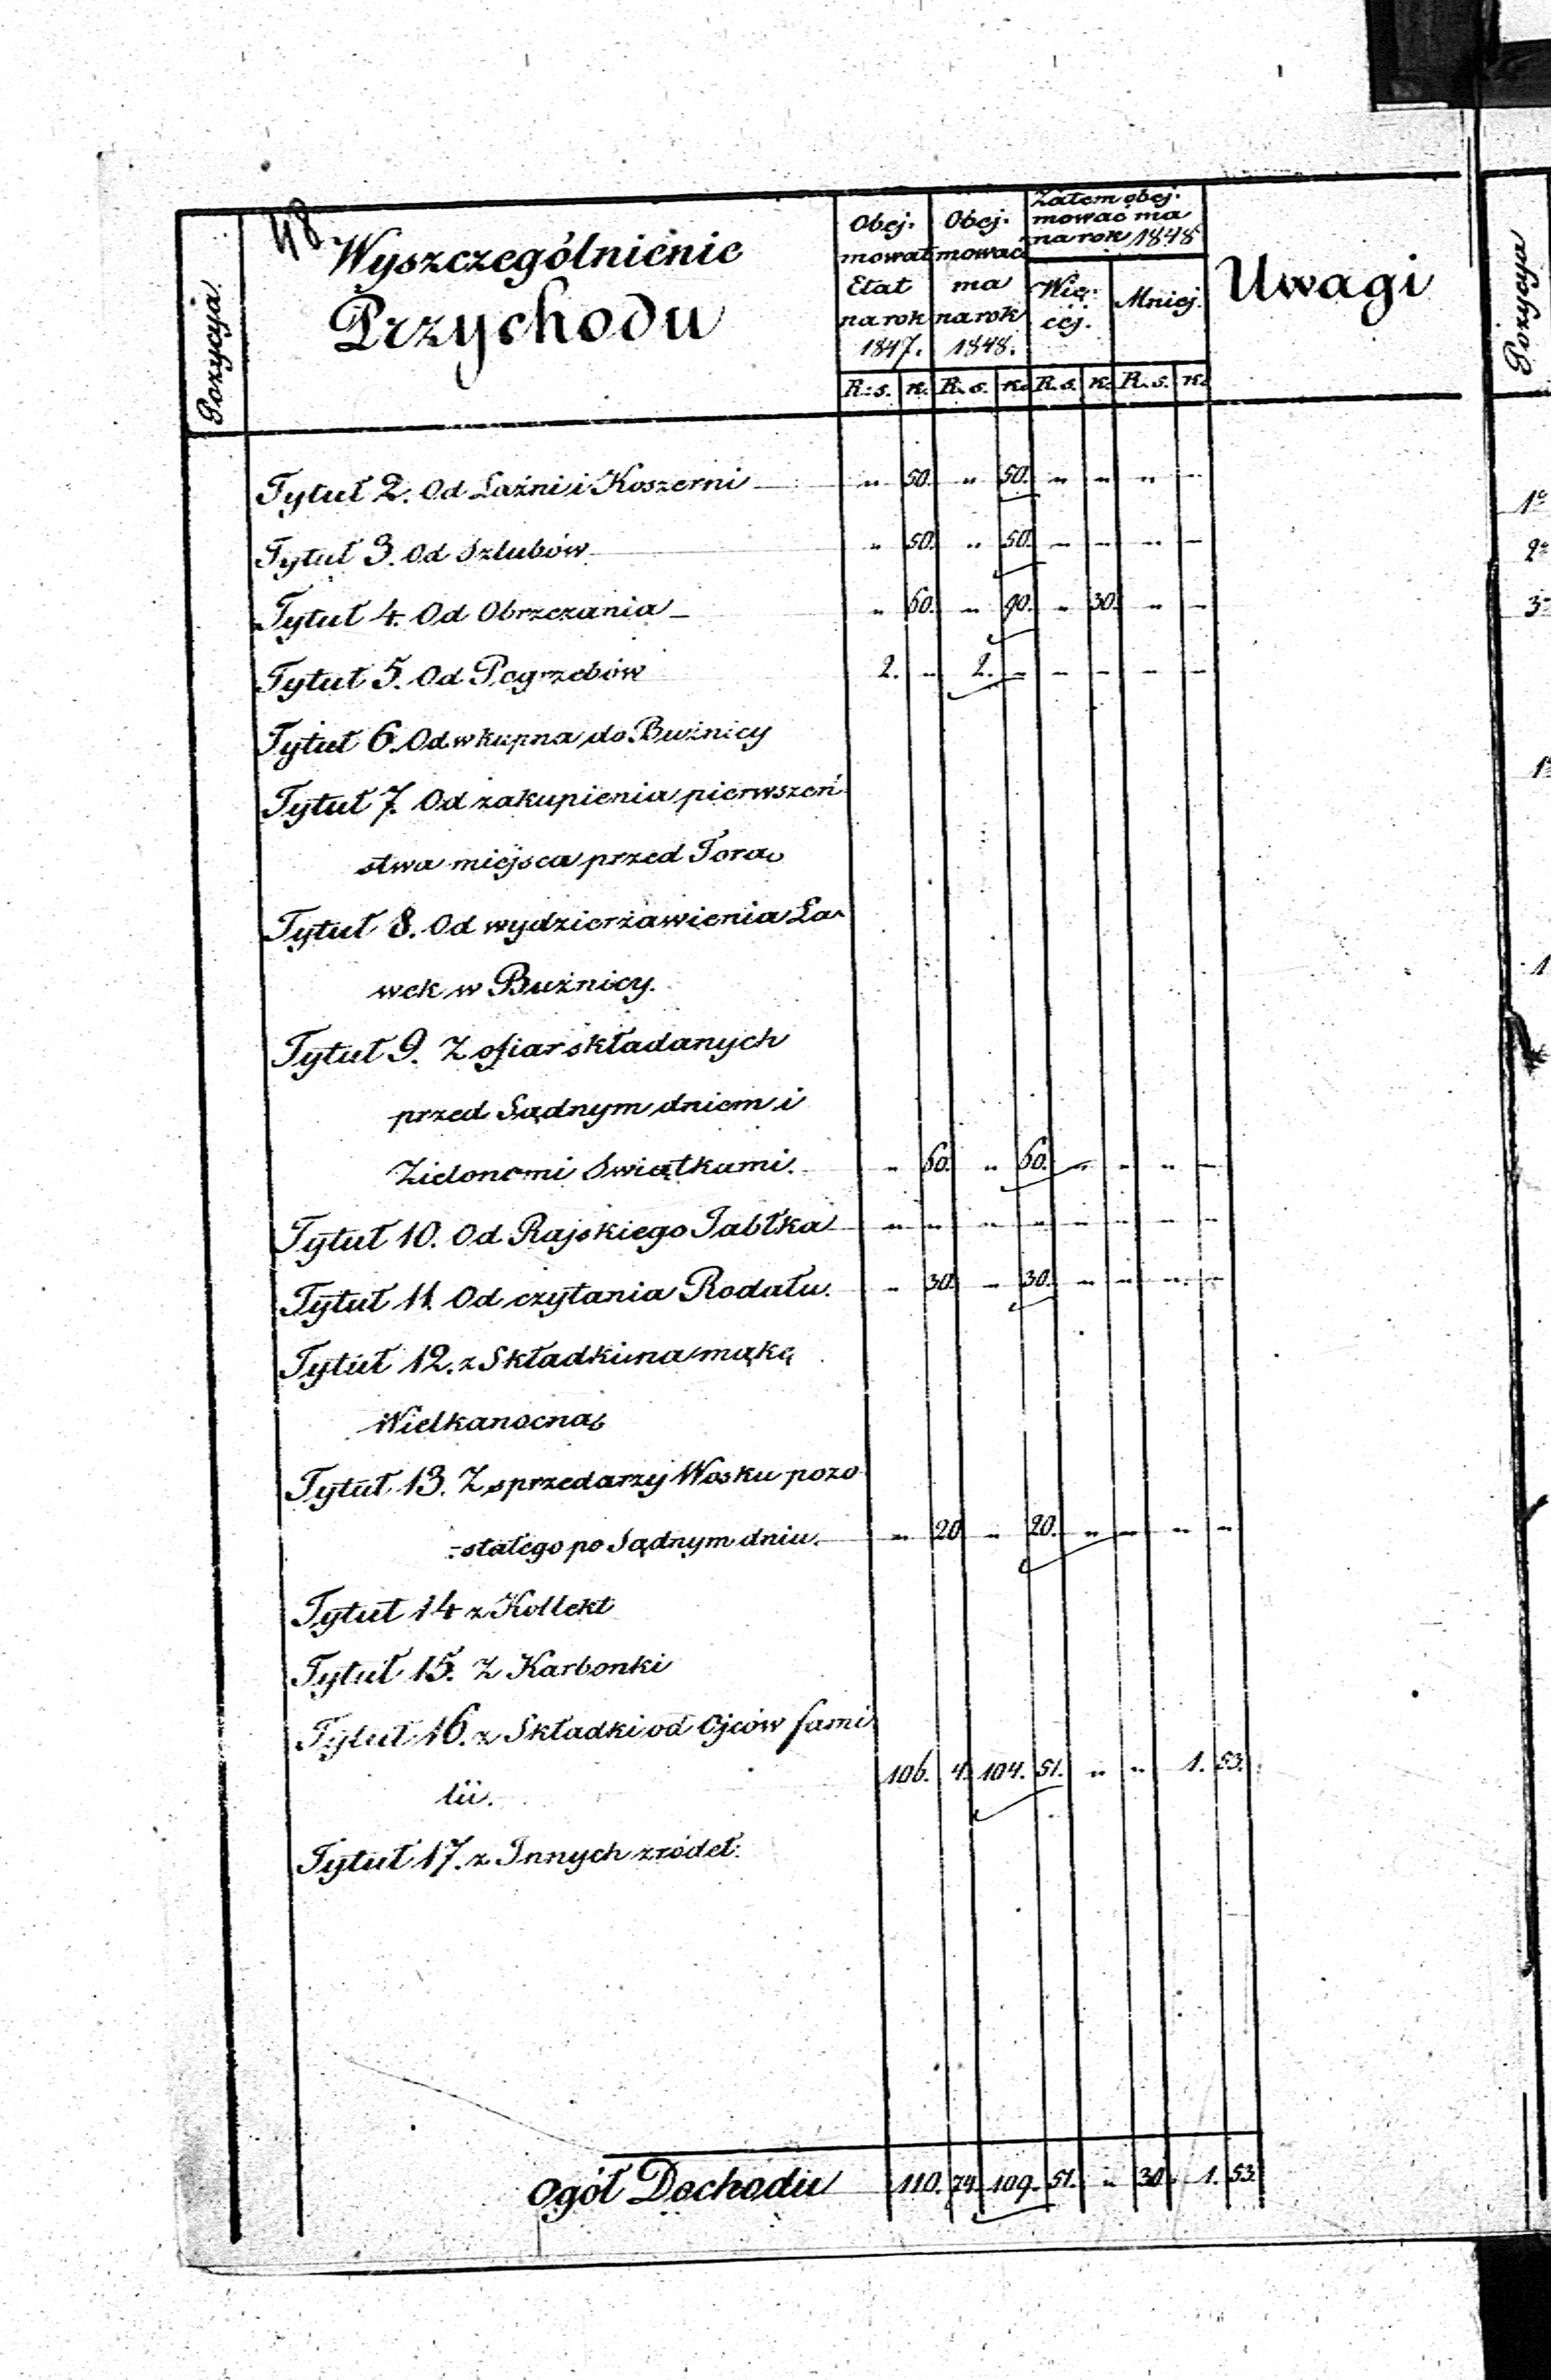 48
Pozycja
Wyszczególnienie
Przychodu
Obej-
mował
Etat
na rok
1847.
Obej-
mować
ma
na rok
1848.
Zatem obej-
mować ma
na rok 1848
Wię-
cej.
Mniej.
Uwagi
R. s. K. R. s. K. R. s. K. R. s. K.
Tytuł 2. Od Łaźni i Koszerni — „ 50. „ 50. „ „ „ „
Tytuł 3. Od Szlubów „ 50. „ 50. „ „ „ „
Tytuł 4. Od Obrzezania — „ 60. „ 90. „ 30. „ „
Tytuł 5. Od Pogrzebów 2. „ 2. „ „ „ „ „
Tytuł 6. Od wkupna do Bużnicy
Tytuł 7. Od zakupienia pierwszeń-
stwa miejsca przed Torą
Tytuł 8. Od wydzierżawienia Ła-
wek w Bużnicy.
Tytuł 9. Z ofiar składanych
przed Sądnym dniem i
Zielonemi Swiątkami. „ 60. „ 60. „ „ „ „
Tytuł 10. Od Rajskiego Jabłka „ „ „ „ „ „ „ „
Tytuł 11. Od czytania Rodału. „ 30. „ 30. „ „ „ „
Tytuł 12. z Składki na mąkę
Wielkanocną
Tytuł 13. Z sprzedarzy Wosku pozo
-stałego po Sądnym dniu. „ 20 „ 20. „ „ „ „
Tytuł 14 z Kollekt
Tytuł 15. Z Karbonki
Tytuł 16. z Składki od Ojców fami
lii. 106. 4. 104. 51. „ „ 1. 53.
Tytuł 17. z Innych zródeł.
Ogół Dochodu 110. 74. 109. 51. „ 30. 1. 53.
Pozycja
1º
2º
3º
1º
1